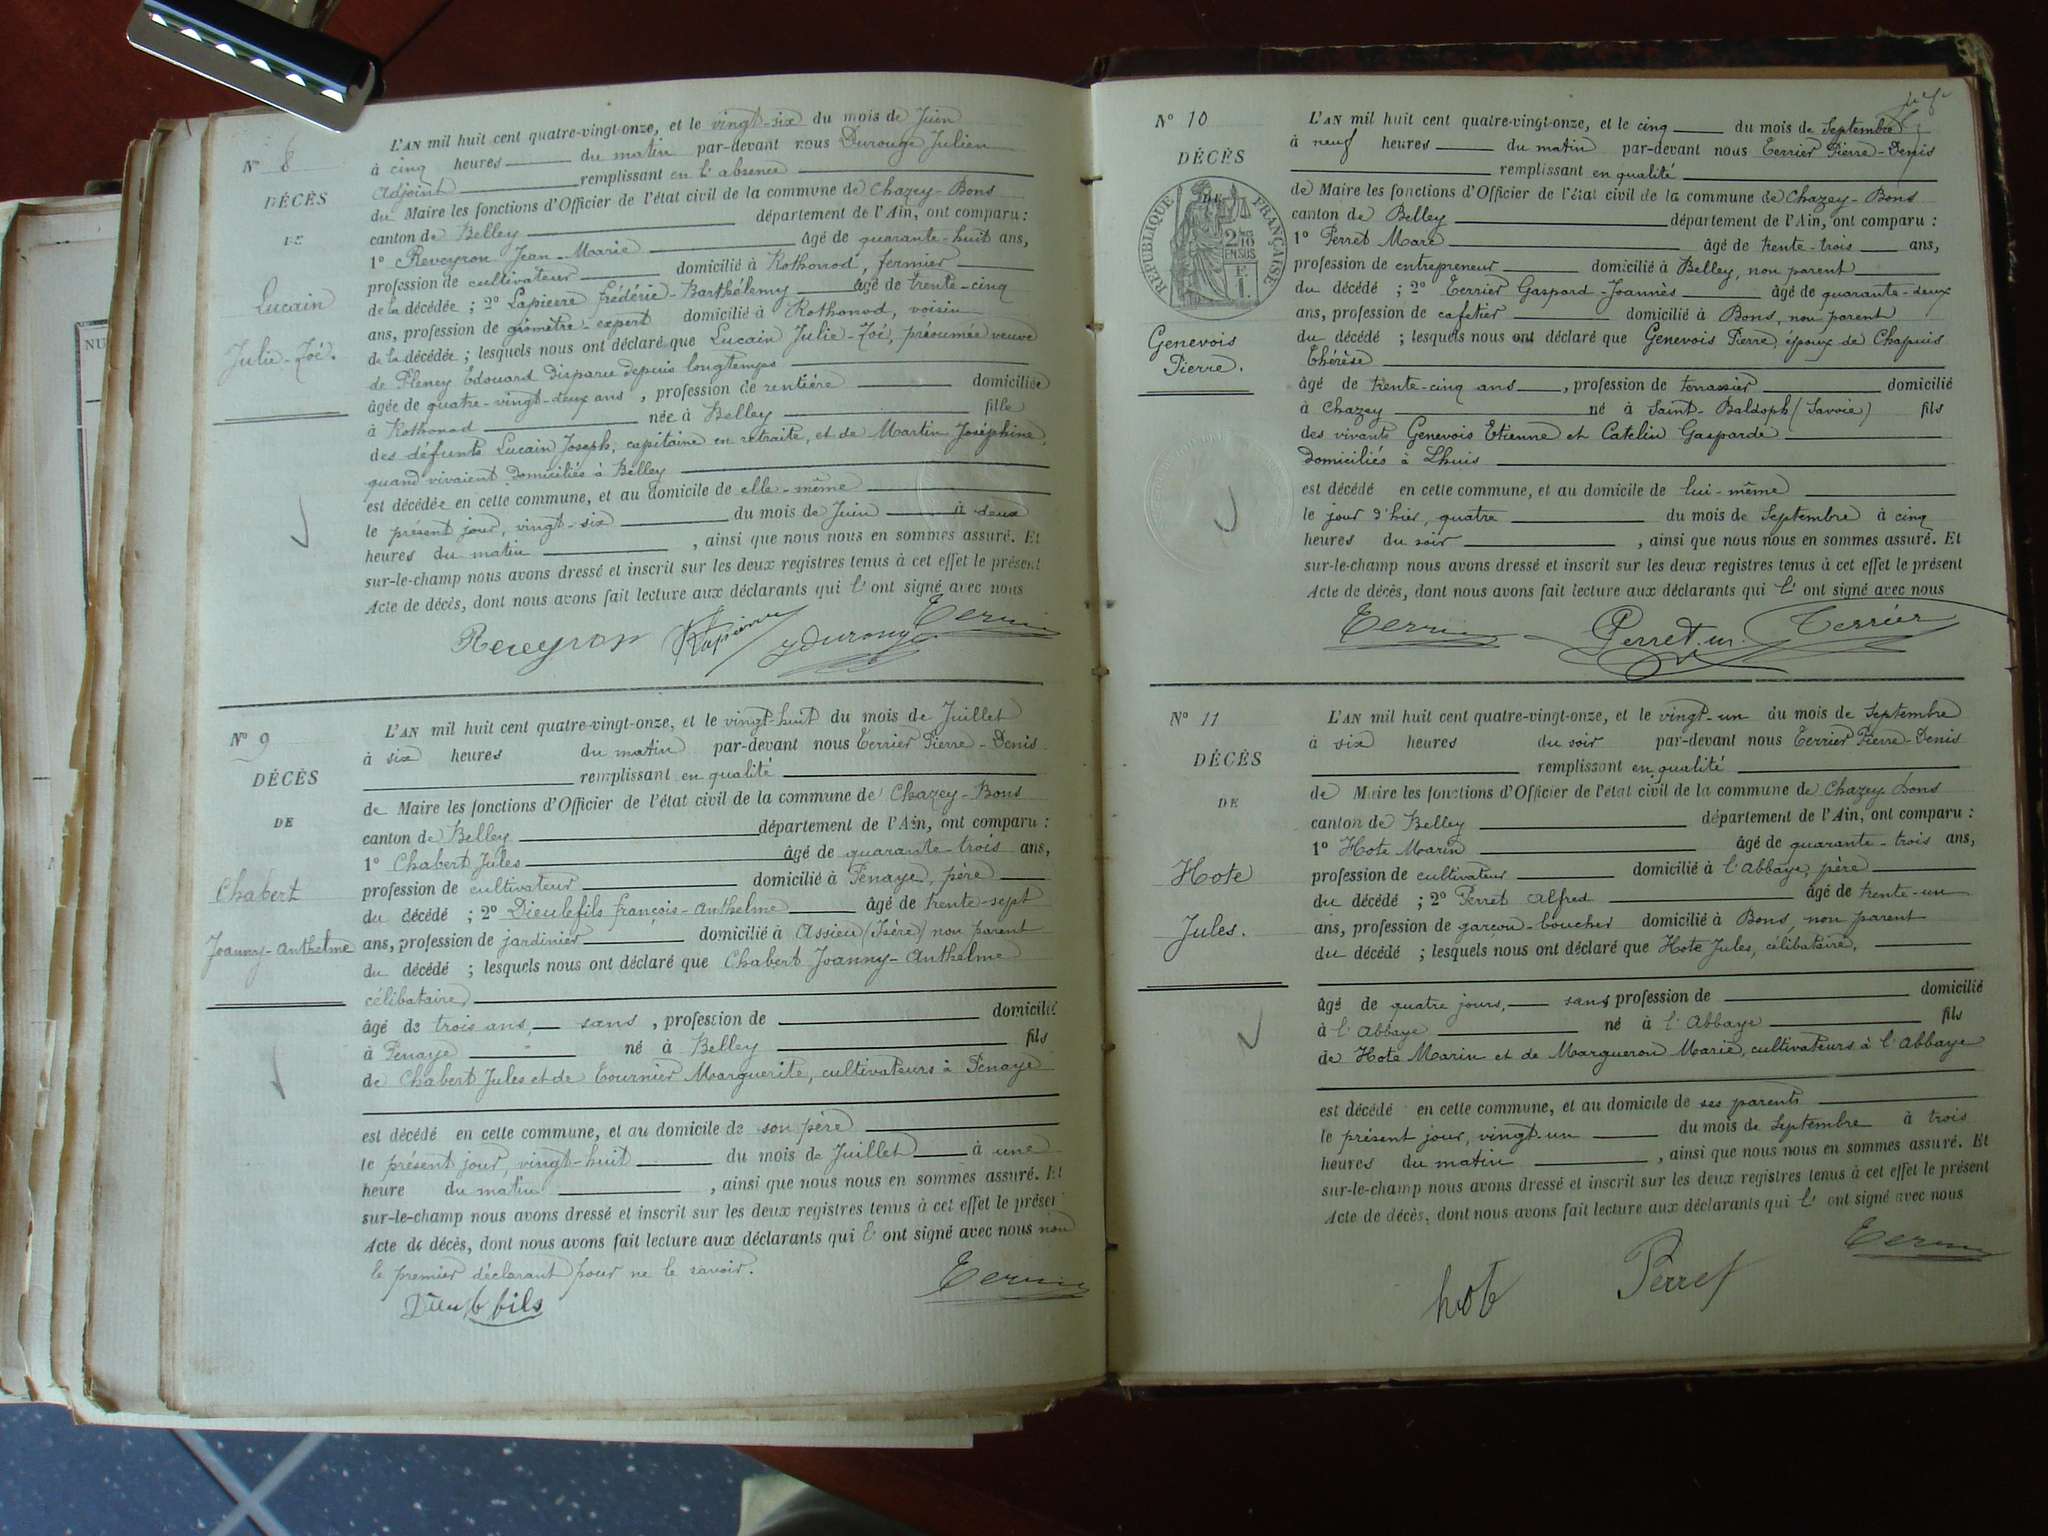 N° 8
DÉCÈS
DE
Lucain
Julie-Zoé.
L'AN mil huit cent quatre-vingt-onze, et le vingt-six du mois de Juin
à cinq heures du matin par-devant nous Durouge Julien
Adjoint remplissant en l'absence
du Maire les fonctions d'Officier de l'état civil de la commune de Chazey-Bons
canton de Belley département de l'Ain, ont comparu :
1° Reveyron Jean-Marie âgé de quarante-huit ans,
profession de cultivateur domicilié à Rothonod, fermier
de la décédée ; 2° Lapierre Frédéric-Barthélemy âgé de trente-cinq
ans, profession de géomètre-expert domicilié à Rothonod, voisin
de la décédée ; lesquels nous ont déclaré que Lucain Julie-Zoé, présumée veuve
de Fleney Edouard disparu depuis longtemps
âgée de quatre-vingt-deux ans, profession de rentière domiciliée
à Rothonod née à Belley fille
des défunts Lucain Joseph, capitaine en retraite, et de Martin Joséphine,
quand vivaient domiciliés à Belley
est décédée en cette commune, et au domicile de elle-même
le présent jour, vingt-six du mois de Juin à deux
heures du matin, ainsi que nous nous en sommes assuré. Et
sur-le-champ nous avons dressé et inscrit sur les deux registres tenus à cet effet le présent
Acte de décès, dont nous avons fait lecture aux déclarants qui l'ont signé avec nous
Reveyron Lapierre J Durouge Terrier
N° 9
DÉCÈS
DE
Chabert
Joanny-Anthelme
L'AN mil huit cent quatre-vingt-onze, et le vingt-huit du mois de Juillet
à six heures du matin par-devant nous Terrier Pierre-Denis
remplissant en qualité
de Maire les fonctions d'Officier de l'état civil de la commune de Chazey-Bons
canton de Belley département de l'Ain, ont comparu :
1° Chabert Jules âgé de quarante-trois ans,
profession de cultivateur domicilié à Penaye, père
du décédé ; 2° Dieulefils françois-Anthelme âgé de trente-sept
ans, profession de jardinier domicilié à Assieu (Isère) non parent
du décédé ; lesquels nous ont déclaré que Chabert Joanny-Anthelme
célibataire,
âgé de trois ans, sans, profession de domicilié
à Penaye né à Belley fils
de Chabert Jules et de Tournier Marguerite, cultivateurs à Penaye
est décédé en cette commune, et au domicile de son père
le présent jour, vingt-huit du mois de Juillet à une
heure du matin, ainsi que nous nous en sommes assuré. Et
sur-le-champ nous avons dressé et inscrit sur les deux registres tenus à cet effet le présent
Acte de décès, dont nous avons fait lecture aux déclarants qui l'ont signé avec nous non
le premier déclarant pour ne le savoir.
Dieulefils Terrier
N° 10
DÉCÈS
DE
RÉPUBLIQUE FRANÇAISE
2/10 EN SUS
Genevois
Pierre.
L'AN mil huit cent quatre-vingt-onze, et le cinq du mois de Septembre
à neuf heures du matin par-devant nous Terrier Pierre-Denis
remplissant en qualité
de Maire les fonctions d'Officier de l'état civil de la commune de Chazey-Bons
canton de Belley département de l'Ain, ont comparu :
1° Perret Marc âgé de trente-trois ans,
profession de entrepreneur domicilié à Belley, non parent
du décédé ; 2° Terrier Gaspard-Joannès âgé de quarante-deux
ans, profession de cafetier domicilié à Bons, non parent
du décédé ; lesquels nous ont déclaré que Genevois Pierre, époux de Chapuis
Thérèse
âgé de trente-cinq ans, profession de terrassier domicilié
à Chazey né à Saint-Baldoph (Savoie) fils
des vivants Genevois Etienne et Catelin Gasparde
domiciliés à Lhuis
est décédé en cette commune, et au domicile de lui-même
le jour d'hier, quatre du mois de Septembre à cinq
heures du soir, ainsi que nous nous en sommes assuré. Et
sur-le-champ nous avons dressé et inscrit sur les deux registres tenus à cet effet le présent
Acte de décès, dont nous avons fait lecture aux déclarants qui l'ont signé avec nous
Terrier Perret m. Terrier
N° 11
DÉCÈS
DE
Hote
Jules.
L'AN mil huit cent quatre-vingt-onze, et le vingt-un du mois de Septembre
à six heures du soir par-devant nous Terrier Pierre-Denis
remplissant en qualité
de Maire les fonctions d'Officier de l'état civil de la commune de Chazey-Bons
canton de Belley département de l'Ain, ont comparu :
1° Hote Marin âgé de quarante-trois ans,
profession de cultivateur domicilié à l'Abbaye, père
du décédé ; 2° Perret Alfred âgé de trente-un
ans, profession de garçon-boucher domicilié à Bons, non parent
du décédé ; lesquels nous ont déclaré que Hote Jules, célibataire,
âgé de quatre jours, sans profession de domicilié
à l'Abbaye né à l'Abbaye fils
de Hote Marin et de Margueron Marie, cultivateurs à l'Abbaye
est décédé en cette commune, et au domicile de ses parents
le présent jour, vingt-un du mois de Septembre à trois
heures du matin, ainsi que nous nous en sommes assuré. Et
sur-le-champ nous avons dressé et inscrit sur les deux registres tenus à cet effet le présent
Acte de décès, dont nous avons fait lecture aux déclarants qui l'ont signé avec nous
hote Perret Terrier